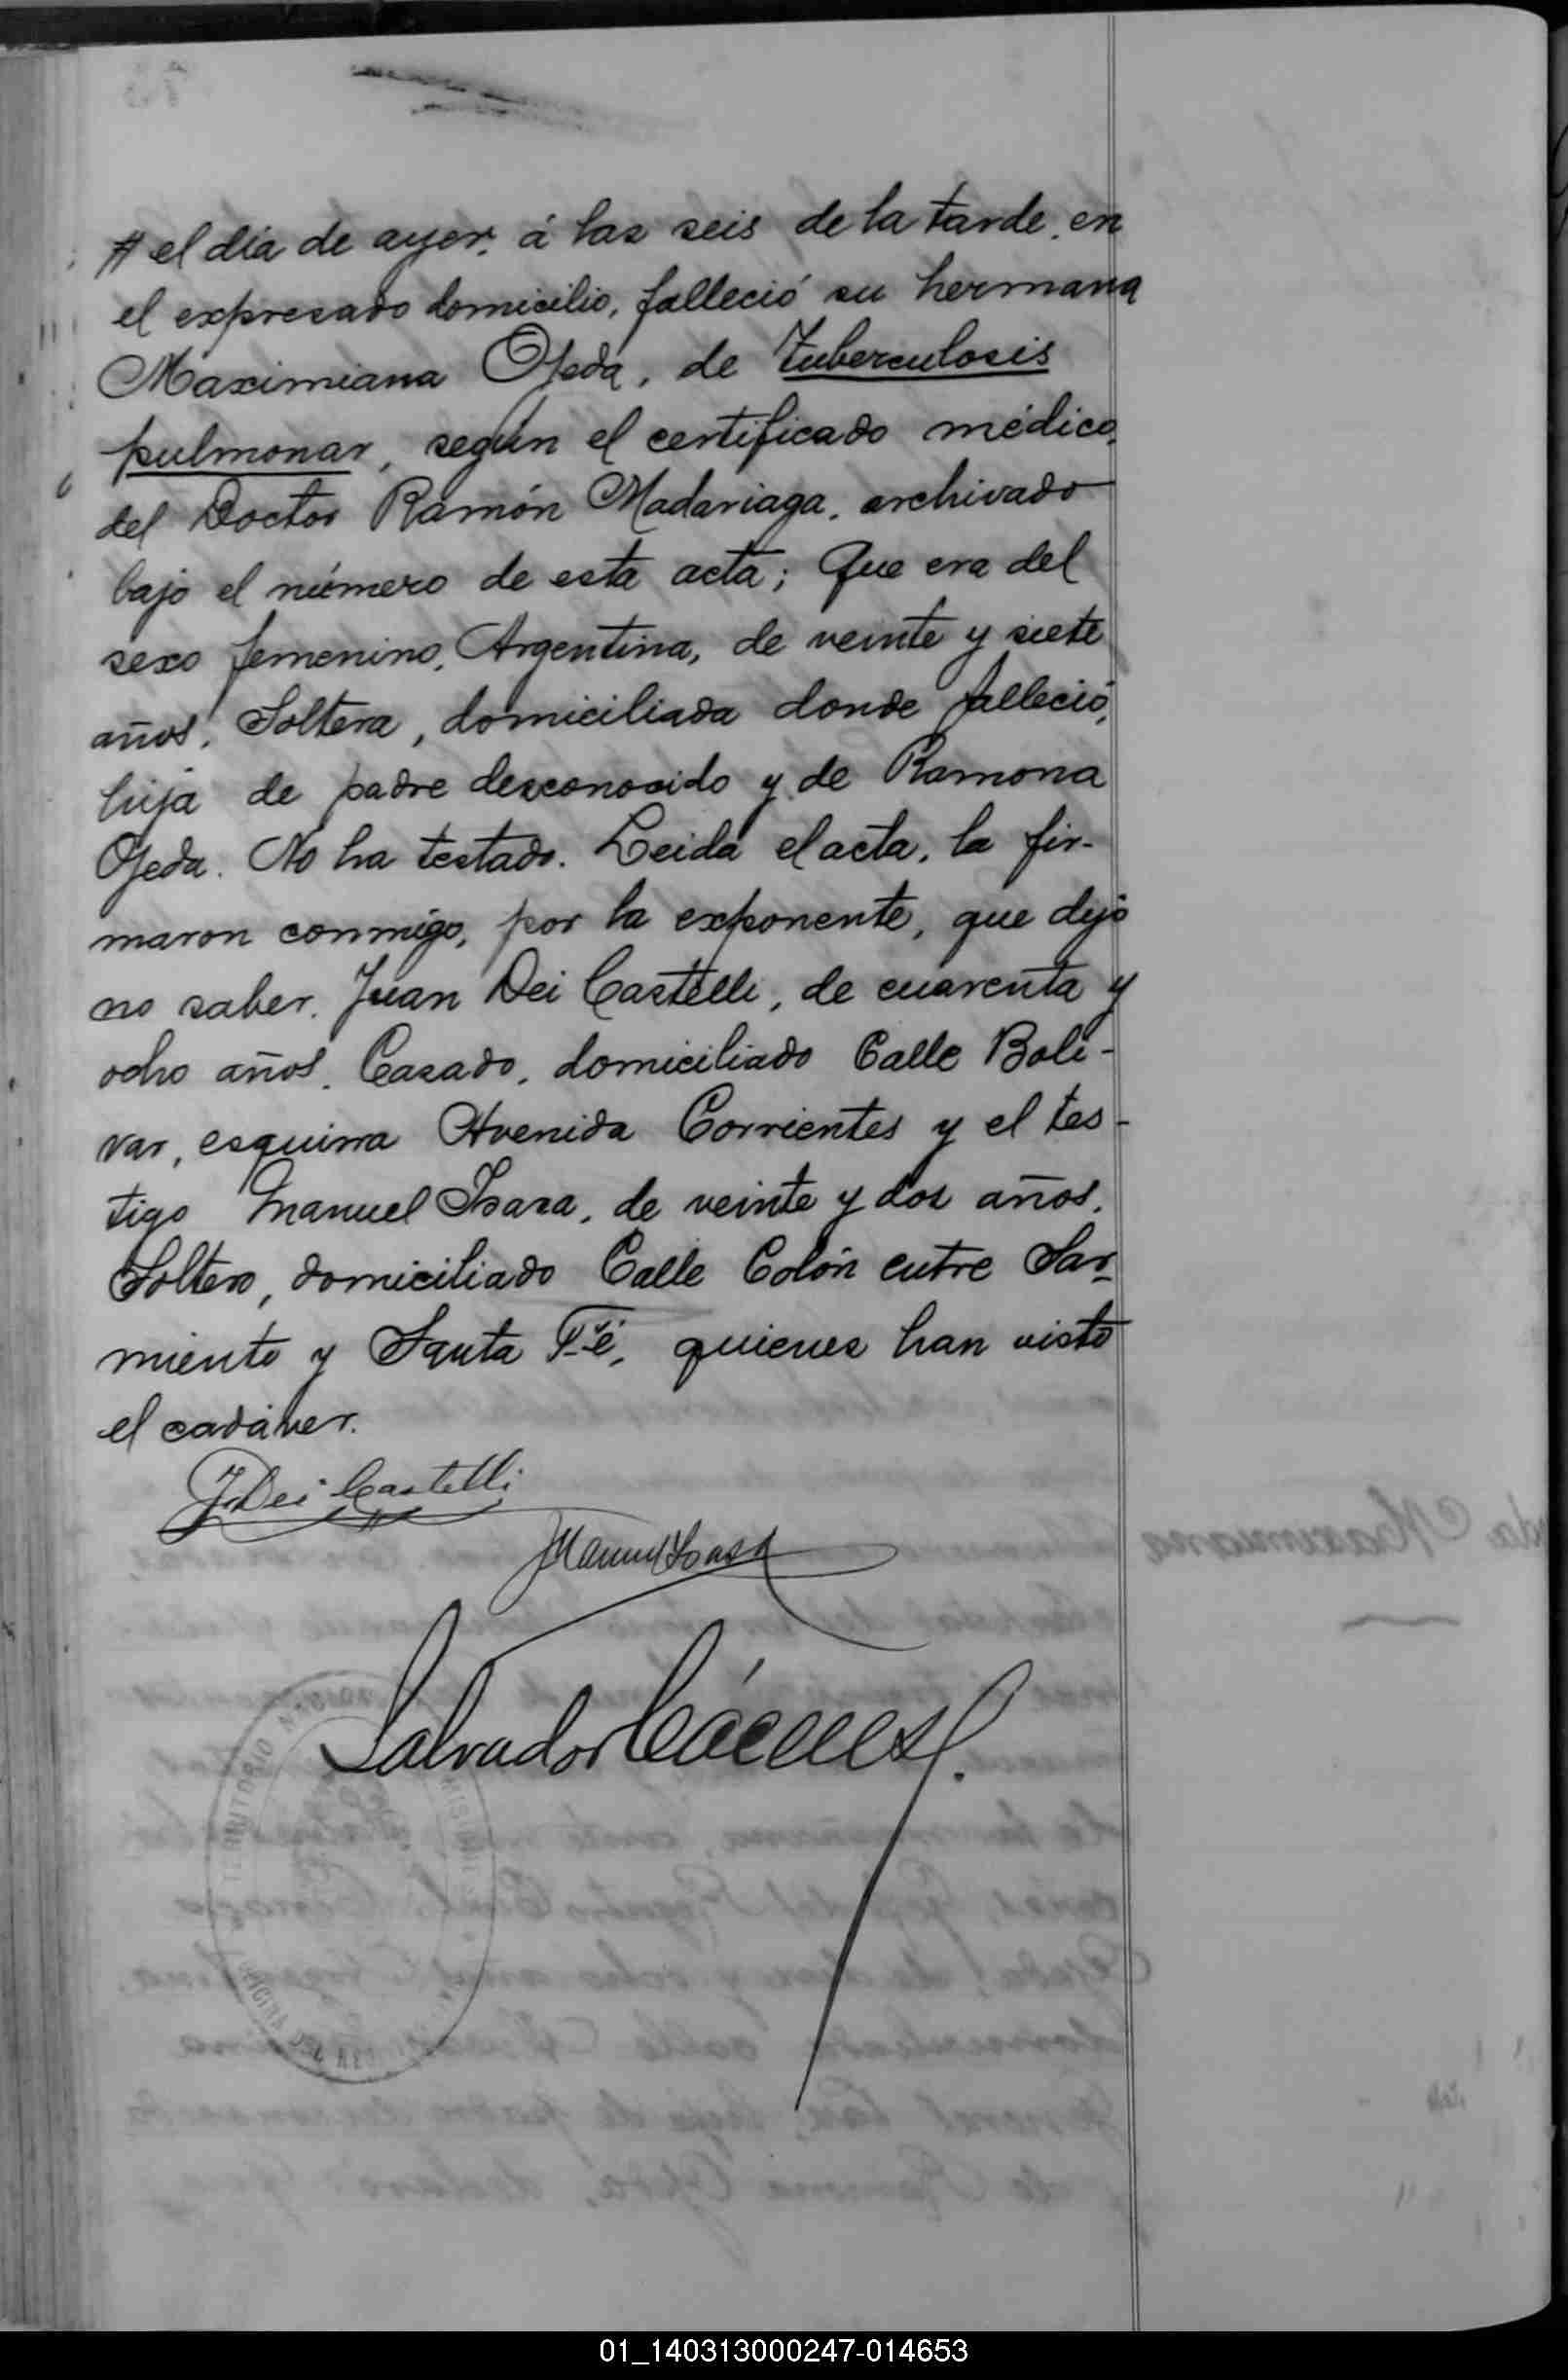 # el día de ayer, á las seis de la tarde, en
el expresado domicilio, falleció su hermana
Maximiana Ojeda, de Tuberculosis
pulmonar, según el certificado médico,
del Doctor Ramón Madariaga, archivado
bajo el número de esta acta; Que era del
sexo femenino, Argentina, de veinte y siete
años, Soltera, domiciliada donde falleció,
hija de padre desconocido y de Ramona
Ojeda. No ha testado. Leida el acta, la fir-
maron conmigo, por la exponente, que dijo
no saber, Juan Dei Castelli, de cuarenta y
ocho años, Casado, domiciliado Calle Boli-
var, esquina Avenida Corrientes y el tes-
tigo Manuel Isasa, de veinte y dos años,
Soltero, domiciliado Calle Colón entre Sar-
miento y Santa Fé, quienes han visto
el cadáver.
J. Dei Castelli
Manuel Isasa
Salvador
TERRITORIO
01_140313000247-014653